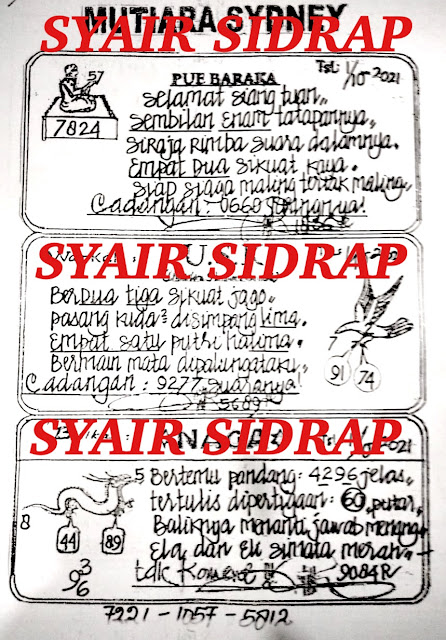 MUTIARA SYDNEY
SYAIR SIDRAP
PUE BARAKA
Tgl: 1/10 2021
57
7824
Selamat siang tuan,,
Sembilan enam tatapannya,,
Siraja rimba suara dalamnya.
Empat dua sikuat kaya.
Siap siaga maling teriak maling,,
Cadangan: 0660
SYAIR SIDRAP
Berdua tiga sikuat jago,,
pasang kuda² disimpang lima.
Empat satu putri halima.
Bermain mata dipalungataku,,
Cadangan: 9277 suaranya!
5689
7
91
74
SYAIR SIDRAP
2021
5 Bertemu pandang: 4296 jelas,,
tertulis dipertigaan: 60, putar,
Baliknya menanti jawab menang
Ela dan Elu simata merah,
tdk
9084R
8
44
89
3
96
7221-1057-5812